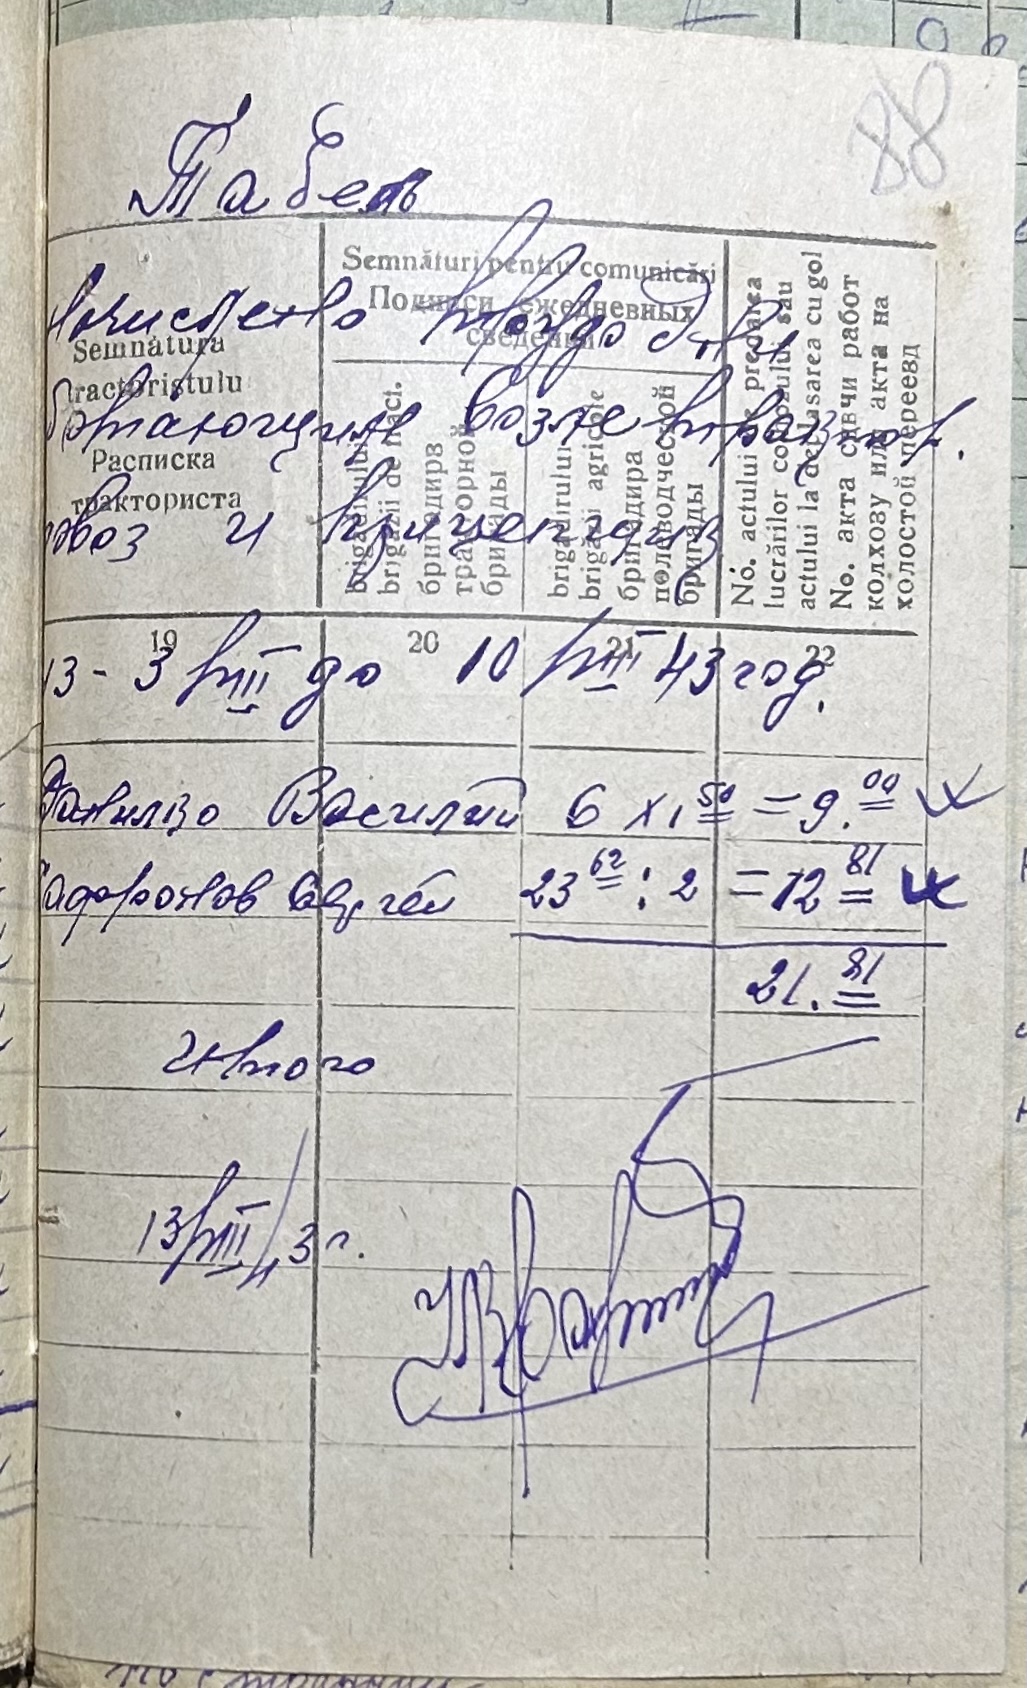 88
Табель
Semnătura
tractoristului
Расписка
тракториста
Semnături pentru comunicări
Подписи ежедневных
сведений
brigadirului
brigăzii de tract.
бригадира
тракторной
бригады
brigadirului
brigăzii agricole
бригадира
полеводческой
бригады
No. actului de predarea
lucrărilor colhozului sau
actului la declasarea cu gol
No. акта сдвчи работ
колхозу или акта на
холостой переезд
возле трактор.
воз и прицепщик
19 20 21 22
13 - 3 VIII до 10 VIII 43 год.
Данилво Василий 6 x 1 50 = 9.00
Сафронов Сергей 23 62 : 2 = 12 81
21.81
Итого
13/VIII 43 г.